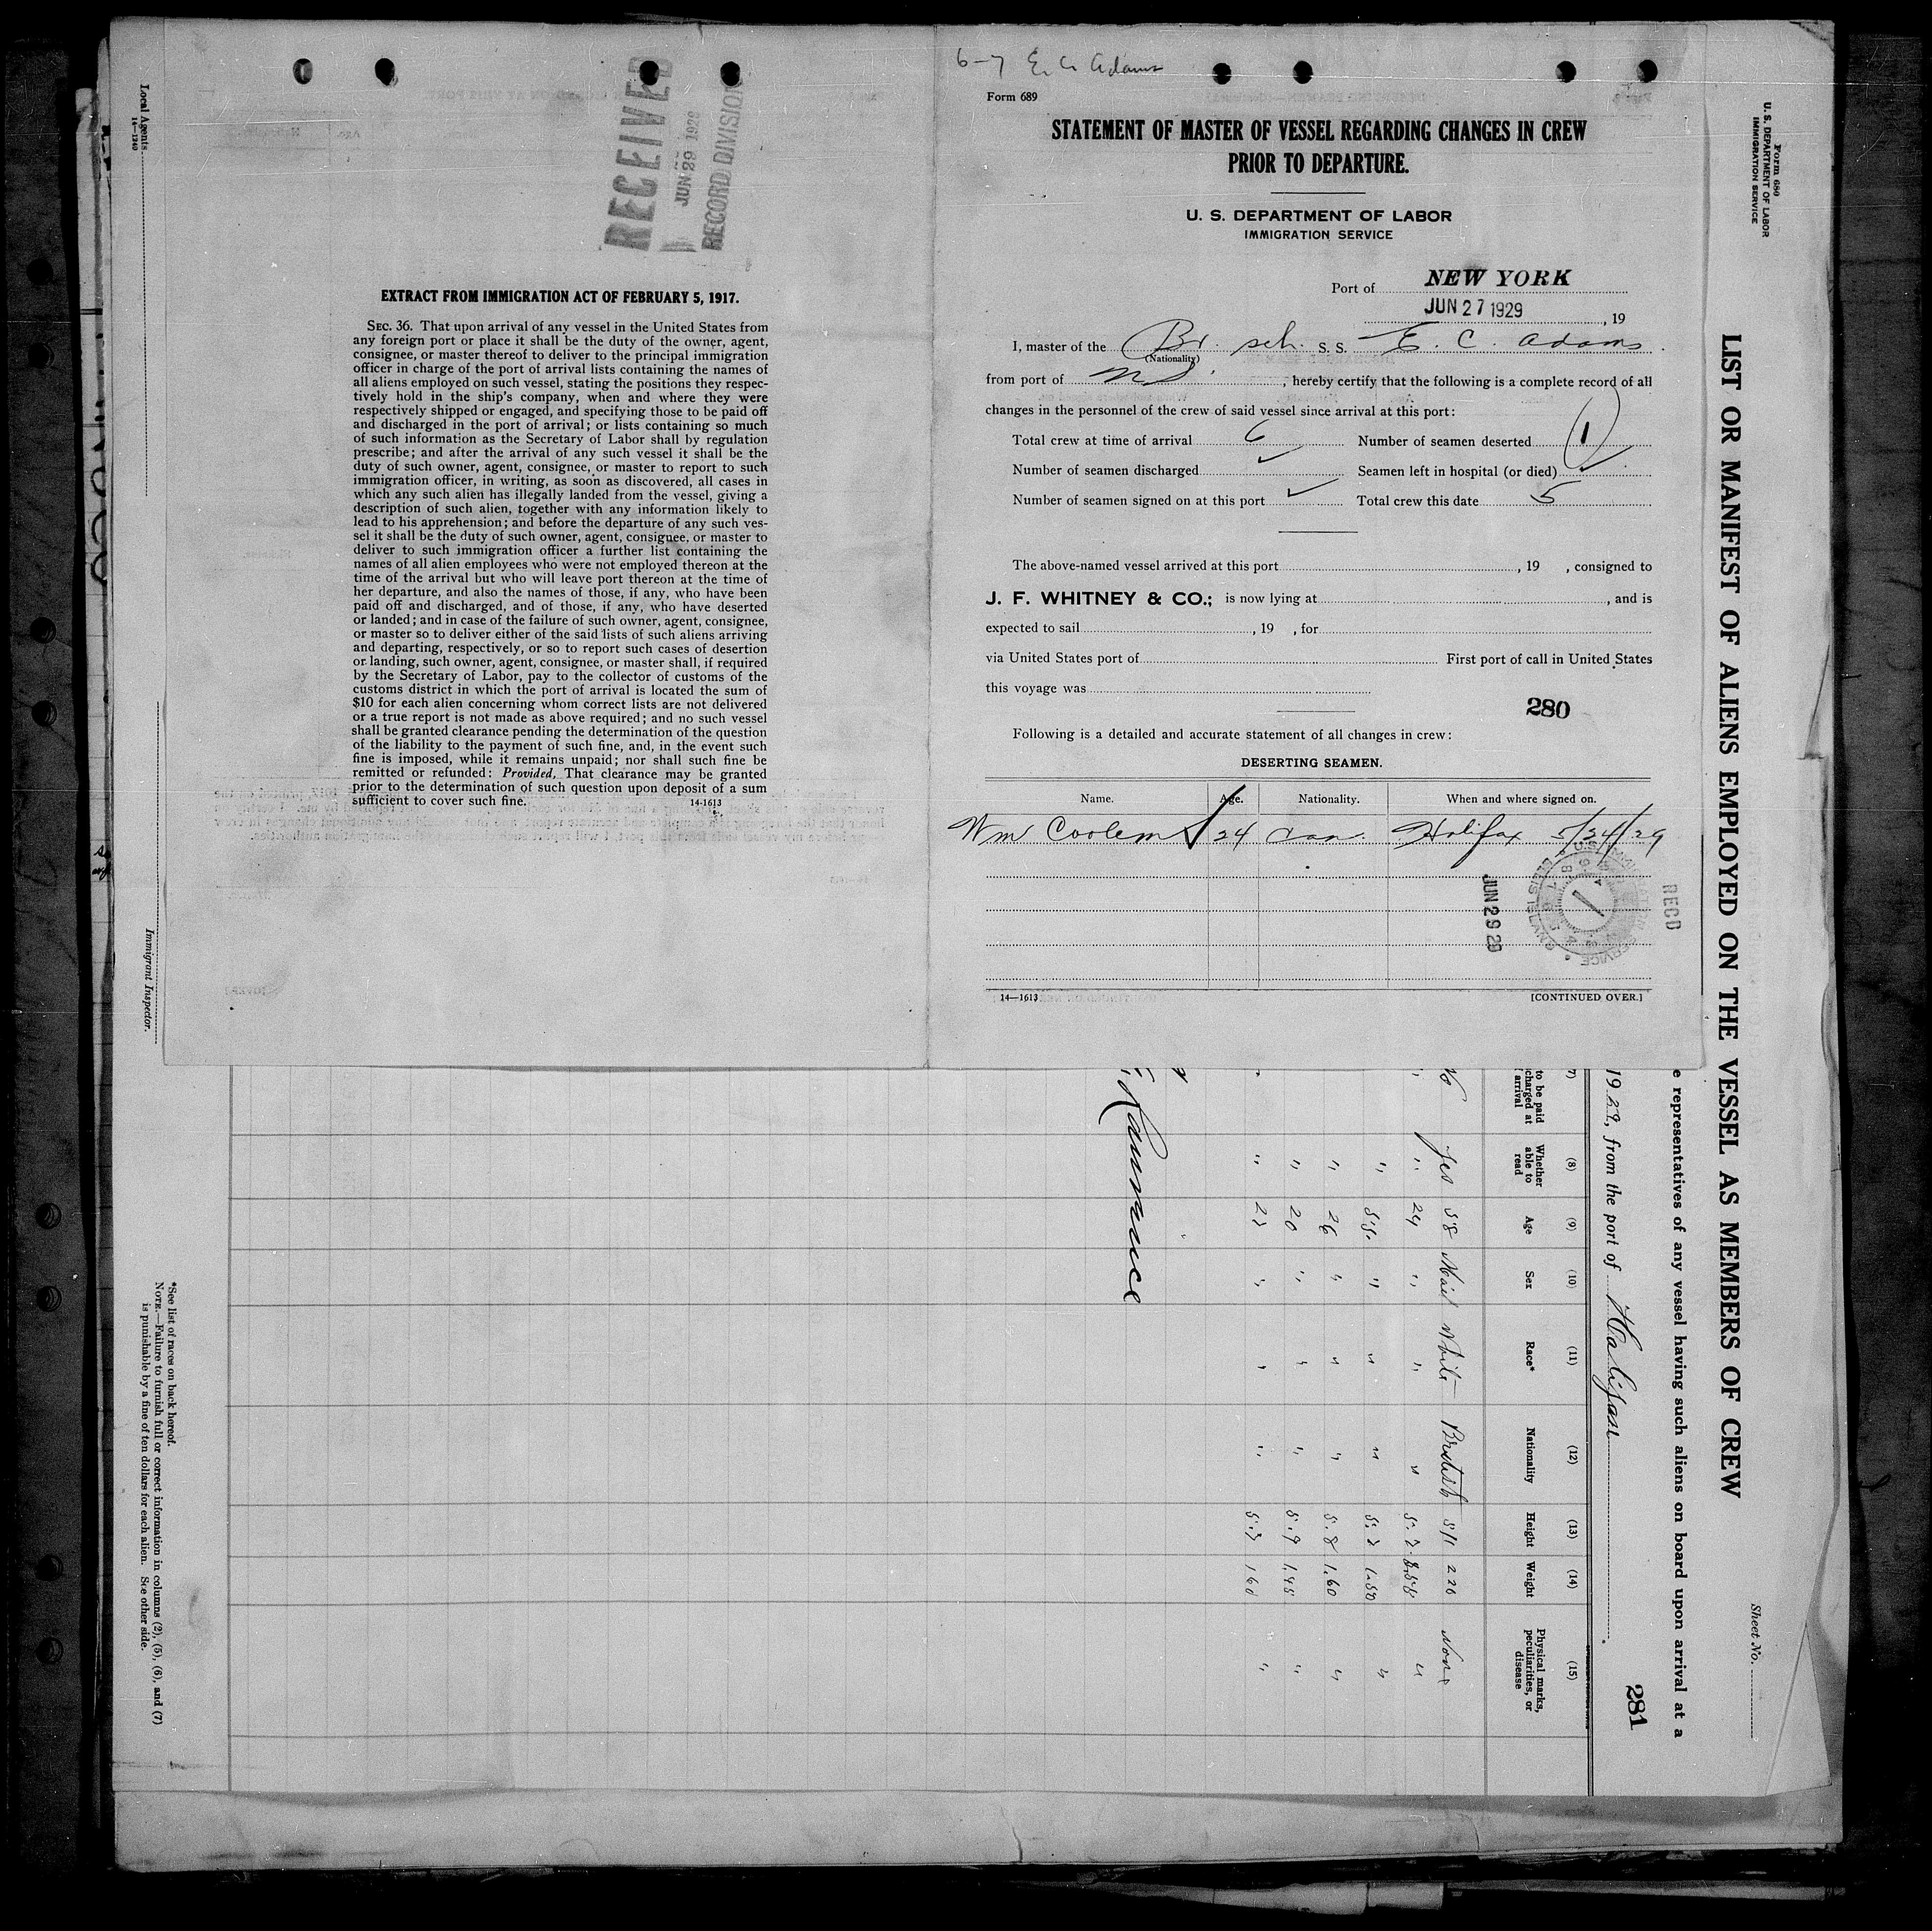 Local Agents
14—1240
Immigrant Inspector.
*See list of races on back hereof.
NOTE.—Failure to furnish full or correct information in columns (2), (5), (6), and (7)
is punishable by a fine of ten dollars for each alien. See other side.
RECEIVED
JUN 29 1929
RECORD DIVISION
EXTRACT FROM IMMIGRATION ACT OF FEBRUARY 5, 1917.
SEC. 36. That upon arrival of any vessel in the United States from
any foreign port or place it shall be the duty of the owner, agent,
consignee, or master thereof to deliver to the principal immigration
officer in charge of the port of arrival lists containing the names of
all aliens employed on such vessel, stating the positions they respec-
tively hold in the ship's company, when and where they were
respectively shipped or engaged, and specifying those to be paid off
and discharged in the port of arrival; or lists containing so much
of such information as the Secretary of Labor shall by regulation
prescribe; and after the arrival of any such vessel it shall be the
duty of such owner, agent, consignee, or master to report to such
immigration officer, in writing, as soon as discovered, all cases in
which any such alien has illegally landed from the vessel, giving a
description of such alien, together with any information likely to
lead to his apprehension; and before the departure of any such ves-
sel it shall be the duty of such owner, agent, consignee, or master to
deliver to such immigration officer a further list containing the
names of all alien employees who were not employed thereon at the
time of the arrival but who will leave port thereon at the time of
her departure, and also the names of those, if any, who have been
paid off and discharged, and of those, if any, who have deserted
or landed; and in case of the failure of such owner, agent, consignee,
or master so to deliver either of the said lists of such aliens arriving
and departing, respectively, or so to report such cases of desertion
or landing, such owner, agent, consignee, or master shall, if required
by the Secretary of Labor, pay to the collector of customs of the
customs district in which the port of arrival is located the sum of
$10 for each alien concerning whom correct lists are not delivered
or a true report is not made as above required; and no such vessel
shall be granted clearance pending the determination of the question
of the liability to the payment of such fine, and, in the event such
fine is imposed, while it remains unpaid; nor shall such fine be
remitted or refunded: Provided, That clearance may be granted
prior to the determination of such question upon deposit of a sum
sufficient to cover such fine. 14-1613
6-7 E. C. Adams
Form 689
STATEMENT OF MASTER OF VESSEL REGARDING CHANGES IN CREW
PRIOR TO DEPARTURE.
U. S. DEPARTMENT OF LABOR
IMMIGRATION SERVICE
Port of NEW YORK
JUN 27 1929, 19
I, master of the Br. sch. S. S. E. C. Adams
(Nationality)
from port of N.S., hereby certify that the following is a complete record of all
changes in the personnel of the crew of said vessel since arrival at this port:
Total crew at time of arrival 6 Number of seamen deserted 1
Number of seamen discharged ✓ Seamen left in hospital (or died) ✓
Number of seamen signed on at this port ✓ Total crew this date 5
The above-named vessel arrived at this port , 19 , consigned to
J. F. WHITNEY & CO.; is now lying at , and is
expected to sail , 19 , for
via United States port of First port of call in United States
this voyage was
280
Following is a detailed and accurate statement of all changes in crew:
DESERTING SEAMEN.
Name. Age. Nationality. When and where signed on.
Wm 24 Can. Halifax 5/24/29
JUN 29 29
RECD
14—1613 [CONTINUED OVER.]
Form 689
U. S. DEPARTMENT OF LABOR
IMMIGRATION SERVICE
Sheet No.
LIST OR MANIFEST OF ALIENS EMPLOYED ON THE VESSEL AS MEMBERS OF CREW
e representatives of any vessel having such aliens on board upon arrival at a
1929, from the port of Halifax
281
(7) (8) (9) (10) (11) (12) (13) (14) (15)
to be paid
charged at
arrival
Whether
able to
read
Age
Sex
Race*
Nationality
Height
Weight
Physical marks,
peculiarities, or
disease
No Yes 58 Mail White British 5/1 220 None
" " 24 " " " "
" " " " "
" 26 " " " 5.8 1.60 "
" 20 " " " 5.9 1.45 "
" " " " " 160 "